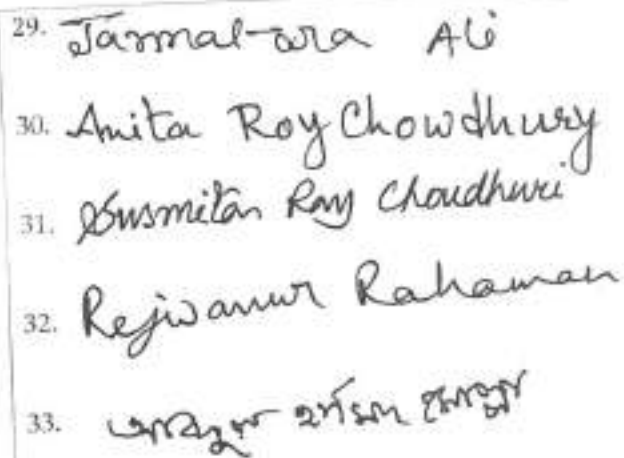 29. Jasmal-ara Ali
30. Anita Roy Chowdhury
31. Susmita Ray Choudhuri
32. Rejwanur Rahaman
33.